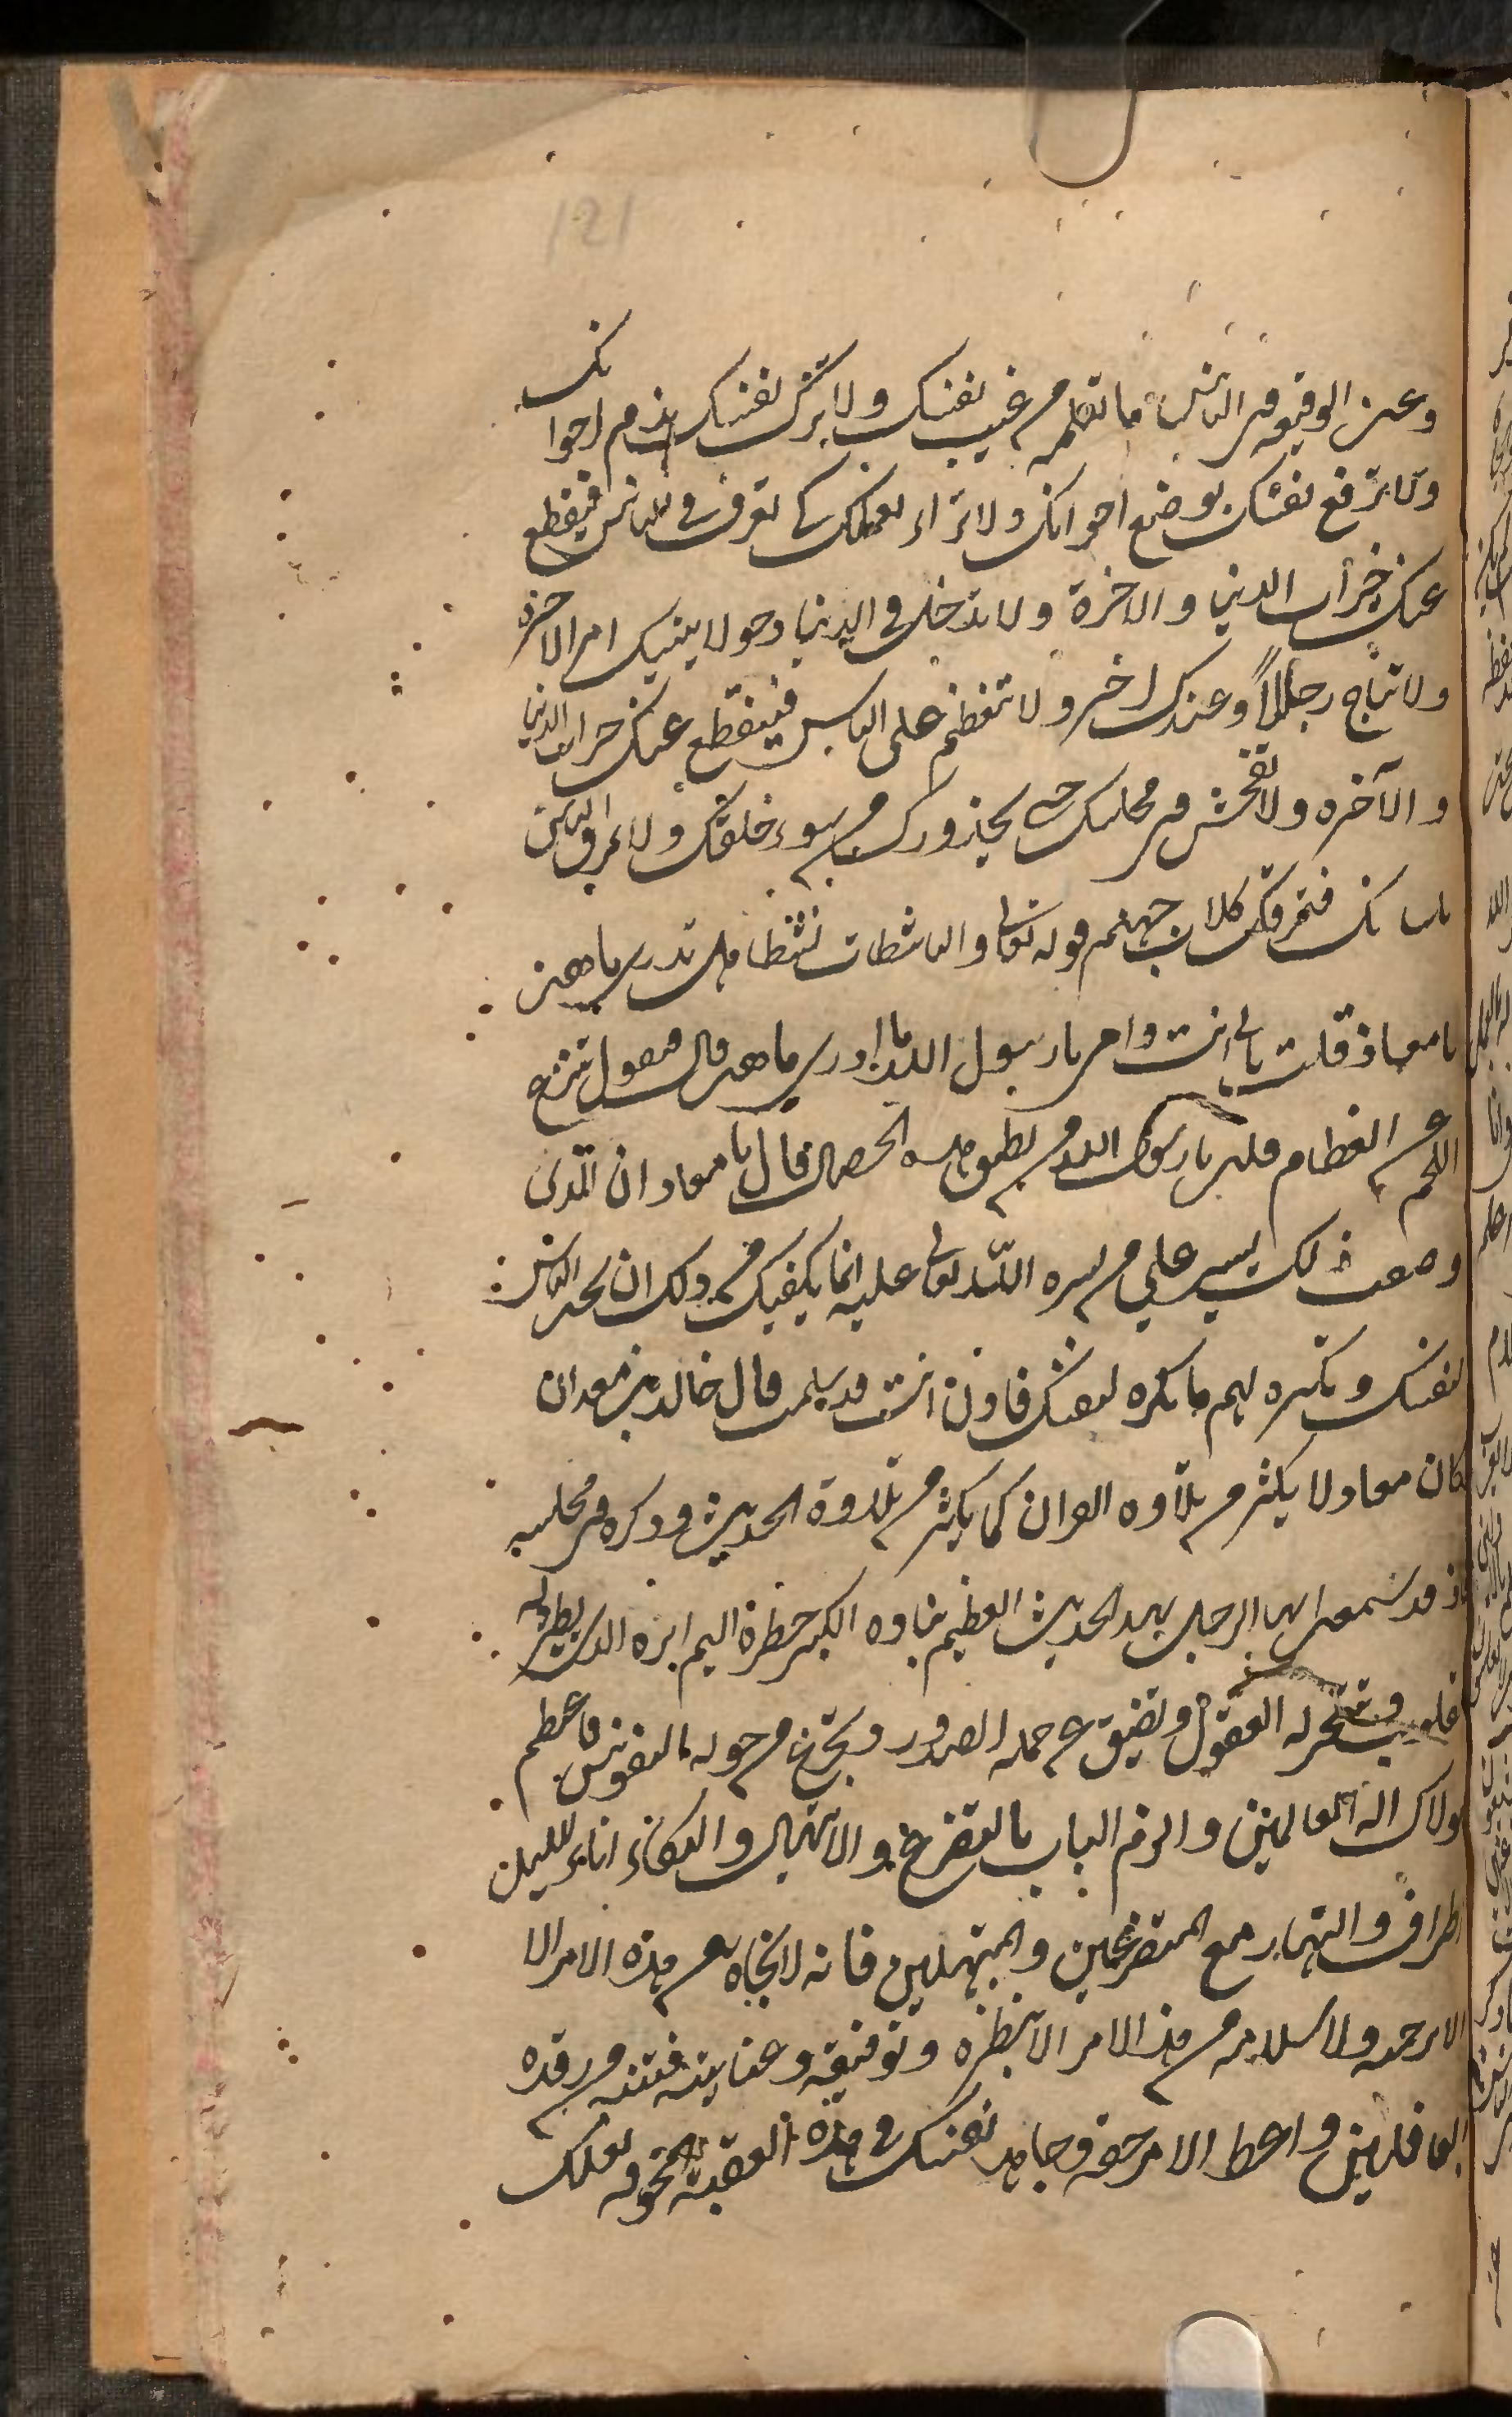 121
وعن الوقيعة في الناس ما تعلم من عيب نفسك ولا تزك نفسك بذم اخوانك
ولا ترفع نفسك بوضع اخوانك ولا تراء بعملك كي تعرف في الناس فيقطع
عنك خيرات الدنيا والاخرة ولا تدخل في الدنيا دخولا ينسيك امر الاخرة
ولا تناج رجلا وعندك اخر ولا تتعظم على الناس فينقطع عنك خيرات الدنيا
والآخره ولا تفحش في مجلسك حتى يحذروك من سوء خلقك ولا تمزق الناس
بلسانك فتمزقك كلاب جهنم قوله تعالى والناشطات نشطا هل تدري ما هن
يا معاذ قلت بابي انت وامي يا رسول الله ما ادري ما هي قال تنزع
اللحم من العظام قلت يا رسول الله من يطيق هذه الخصال قال يا معاذ ان الذي
وصفت لك يسير على من يسره الله تعالى عليه انما يكفيك من ذلك ان تحب للناس
لنفسك وتكره لهم ما تكره لنفسك فاذن انت قد سلمت قال خالد بن معدان
كان معاذ لا يكثر من تلاوة القران كما يكثر من تلاوة الحديث وذكره في مجلسه
قد سمعت ايها الرجل بهذا الحديث العظيم الكبير خطره اليم اثره الذي يطير له
القلوب وتتحير له العقول وتضيق عن حمله الصدور وتجزع من هوله النفوس فاعتصم
بمولاك اله العالمين والزم الباب بالتضرع والابتهال والبكاء اناء الليل
اطراف والنهار مع المتضرعين والمبتهلين فانه لا نجاة من هذه الامر الا
الا برحمته ولا سلامة من هذا الامر الا بنظره وتوفيقه وعنايته فتنبه من رقدة
الغافلين واعط الامر حقه وجاهد نفسك في هذه العقبة المخوفة لعلك